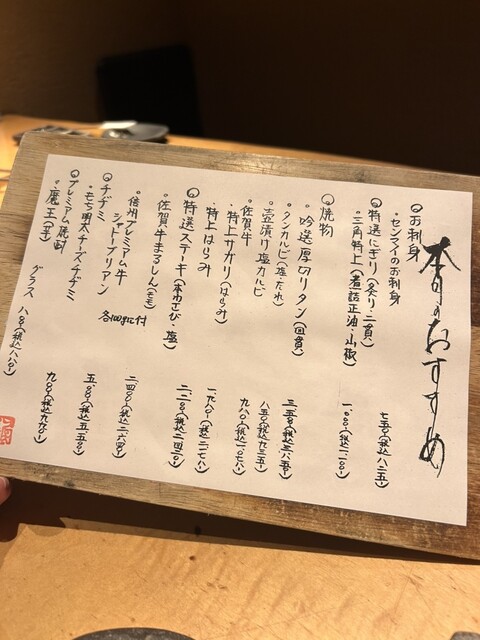 本日のおすすめ
◎お刺身
・センマイのお刺身 七五〇(税込八二五)
◎特選にぎり(炙り・二貫)
・三角特上(煮詰正油・山椒) 一、〇〇〇(税込一、一〇〇)
◎焼物
・吟選厚切りタン(四貫) 三、五〇〇(税込三、八五〇)
・タンカルビ(塩・たれ) 八五〇(税込九三五)
・壺漬け塩カルビ 九八〇(税込一、〇七八)
・佐賀牛
・特上サガリ(はらみ)
・特上はらみ 一、九八〇(税込二、一七八)
◎特選ステーキ(本わさび・塩)
・佐賀牛まるしん(モモ) 二、二〇〇(税込二、四二〇)
・信州プレミアム牛 二、四〇〇(税込二、六四〇)
シャトーブリアン 各100gに付 五、〇〇〇(税込五、五〇〇)
◎チヂミ
・もち明太チーズチヂミ 九〇〇(税込九九〇)
◎プレミアム焼酎
・魔王(芋) グラス 八〇〇(税込八八〇)